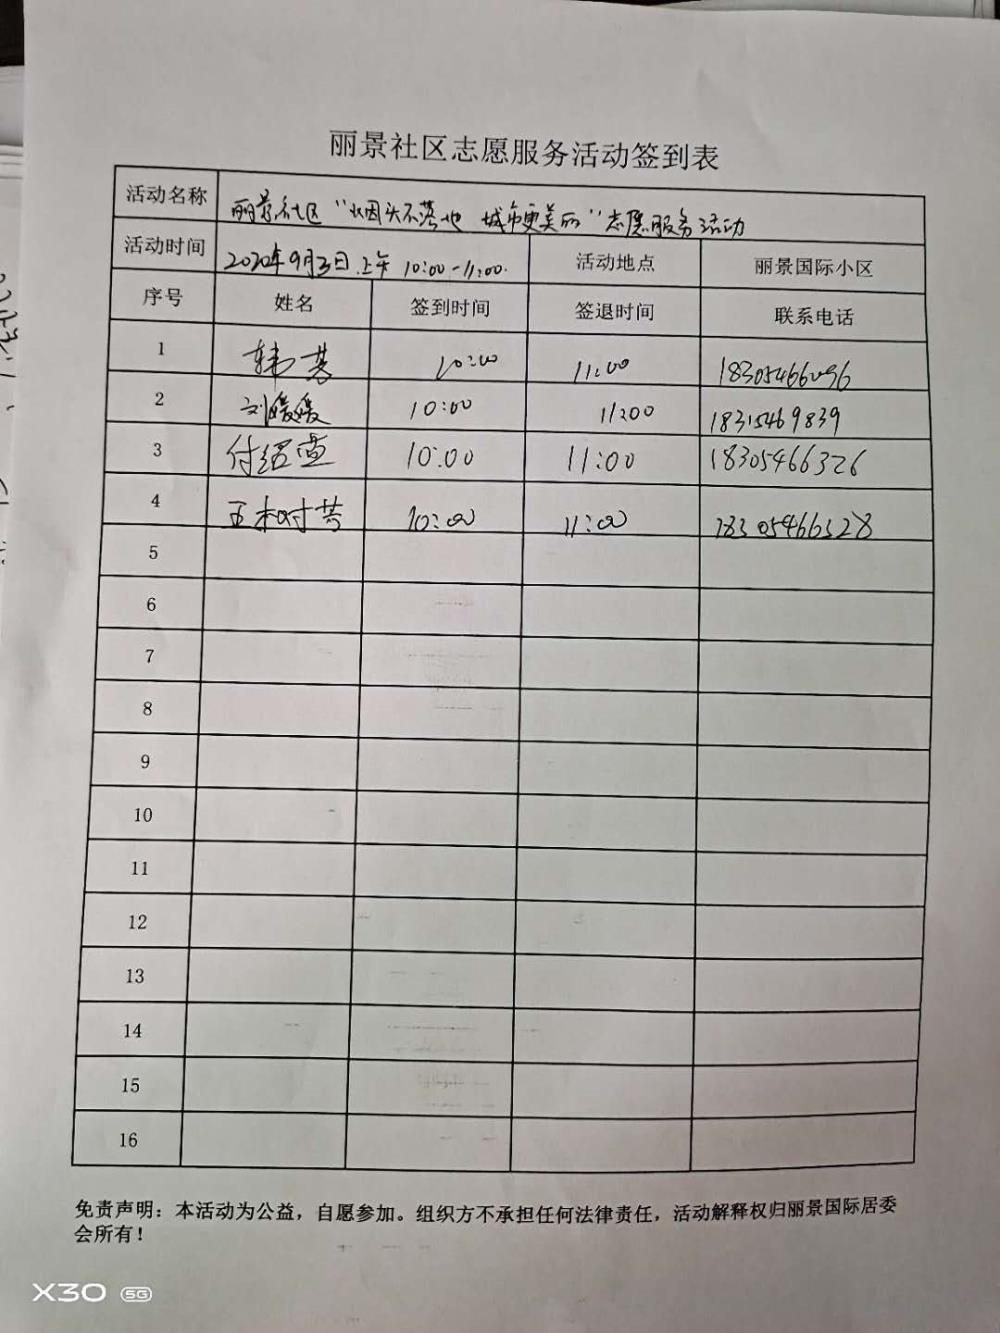 丽景社区志愿服务活动签到表
活动名称 丽景社区“烟头不落地 城市更美丽”志愿服务活动
活动时间 2020年9月3日上午 10:00-11:00. 活动地点 丽景国际小区
序号 姓名 签到时间 签退时间 联系电话
1 10:00 11:00 18305466096
2 刘媛媛 10:00 11:00 18315469839
3 10:00 11:00 18305466326
4 10:00 11:00 18305466328
5
6
7
8
9
10
11
12
13
14
15
16
免责声明：本活动为公益，自愿参加。组织方不承担任何法律责任，活动解释权归丽景国际居委
会所有！
X30 5G